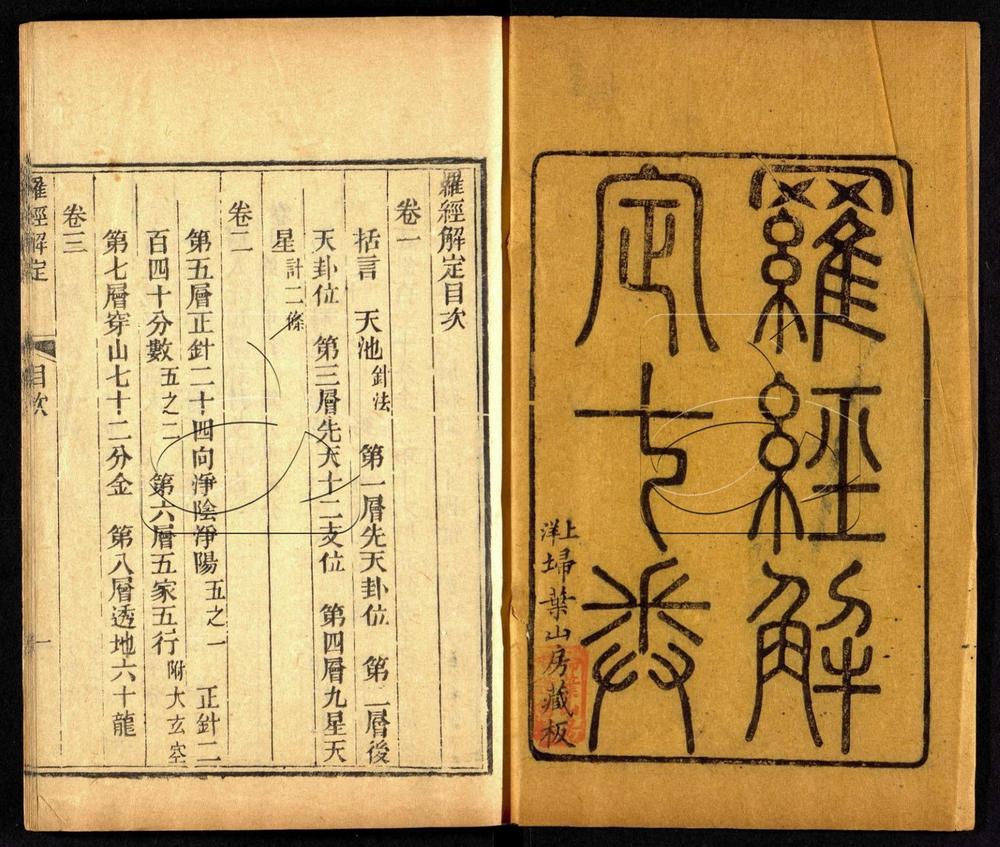 羅經解
定七卷
上洋埽葉山房藏板
羅經解定目次
卷一
括言　天池針法　第一層先天卦位　第二層後
天卦位　第三層先天十二支位　第四層九星天
星計二條
卷二
第五層正針二十四向淨陰淨陽五之一　正針二
百四十分數五之二　第六層五家五行附大玄空
第七層穿山七十二分金　第八層透地六十龍
卷三
羅經解定　目次　一